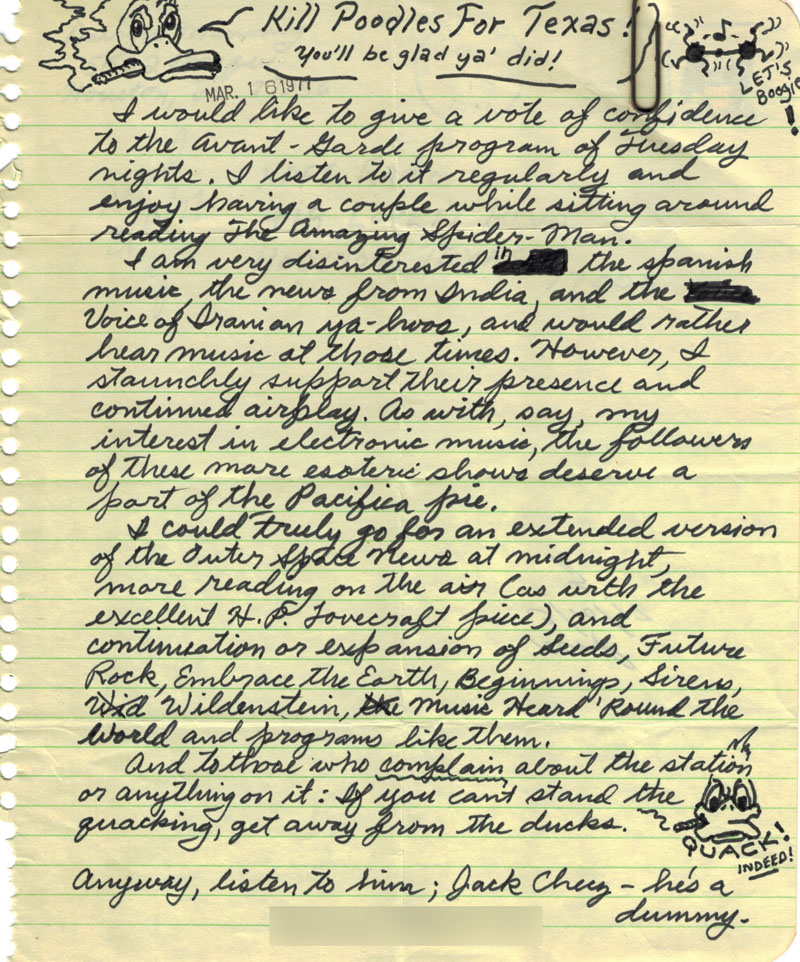 Kill Poodles For Texas!
You'll be glad ya' did!
LET'S
Boogie!
MAR. 16 1977
I would like to give a vote of confidence
to the Avant-Garde program of Tuesday
nights. I listen to it regularly and
enjoy having a couple while sitting around
reading The Amazing Spider-Man.
I am very disinterested in the spanish
music, the news from India, and the
Voice of Iranian ya-hoos, and would rather
hear music at those times. However, I
staunchly support their presence and
continued airplay. As with, say, my
interest in electronic music, the followers
of these more esoteric shows deserve a
part of the Pacifica pie.
I could truly go for an extended version
of the Outer Space News at midnight,
more reading on the air (as with the
excellent H.P. Lovecraft piece), and
continuation or expansion of Seeds, Future
Rock, Embrace the Earth, Beginnings, Sirens,
Wildenstein, Music Heard 'Round the
World and programs like them.
And to those who complain about the station
or anything on it: If you can't stand the
quacking, get away from the ducks.
QUACK!
INDEED!
Anyway, listen to him; Jack - he's a
dummy.